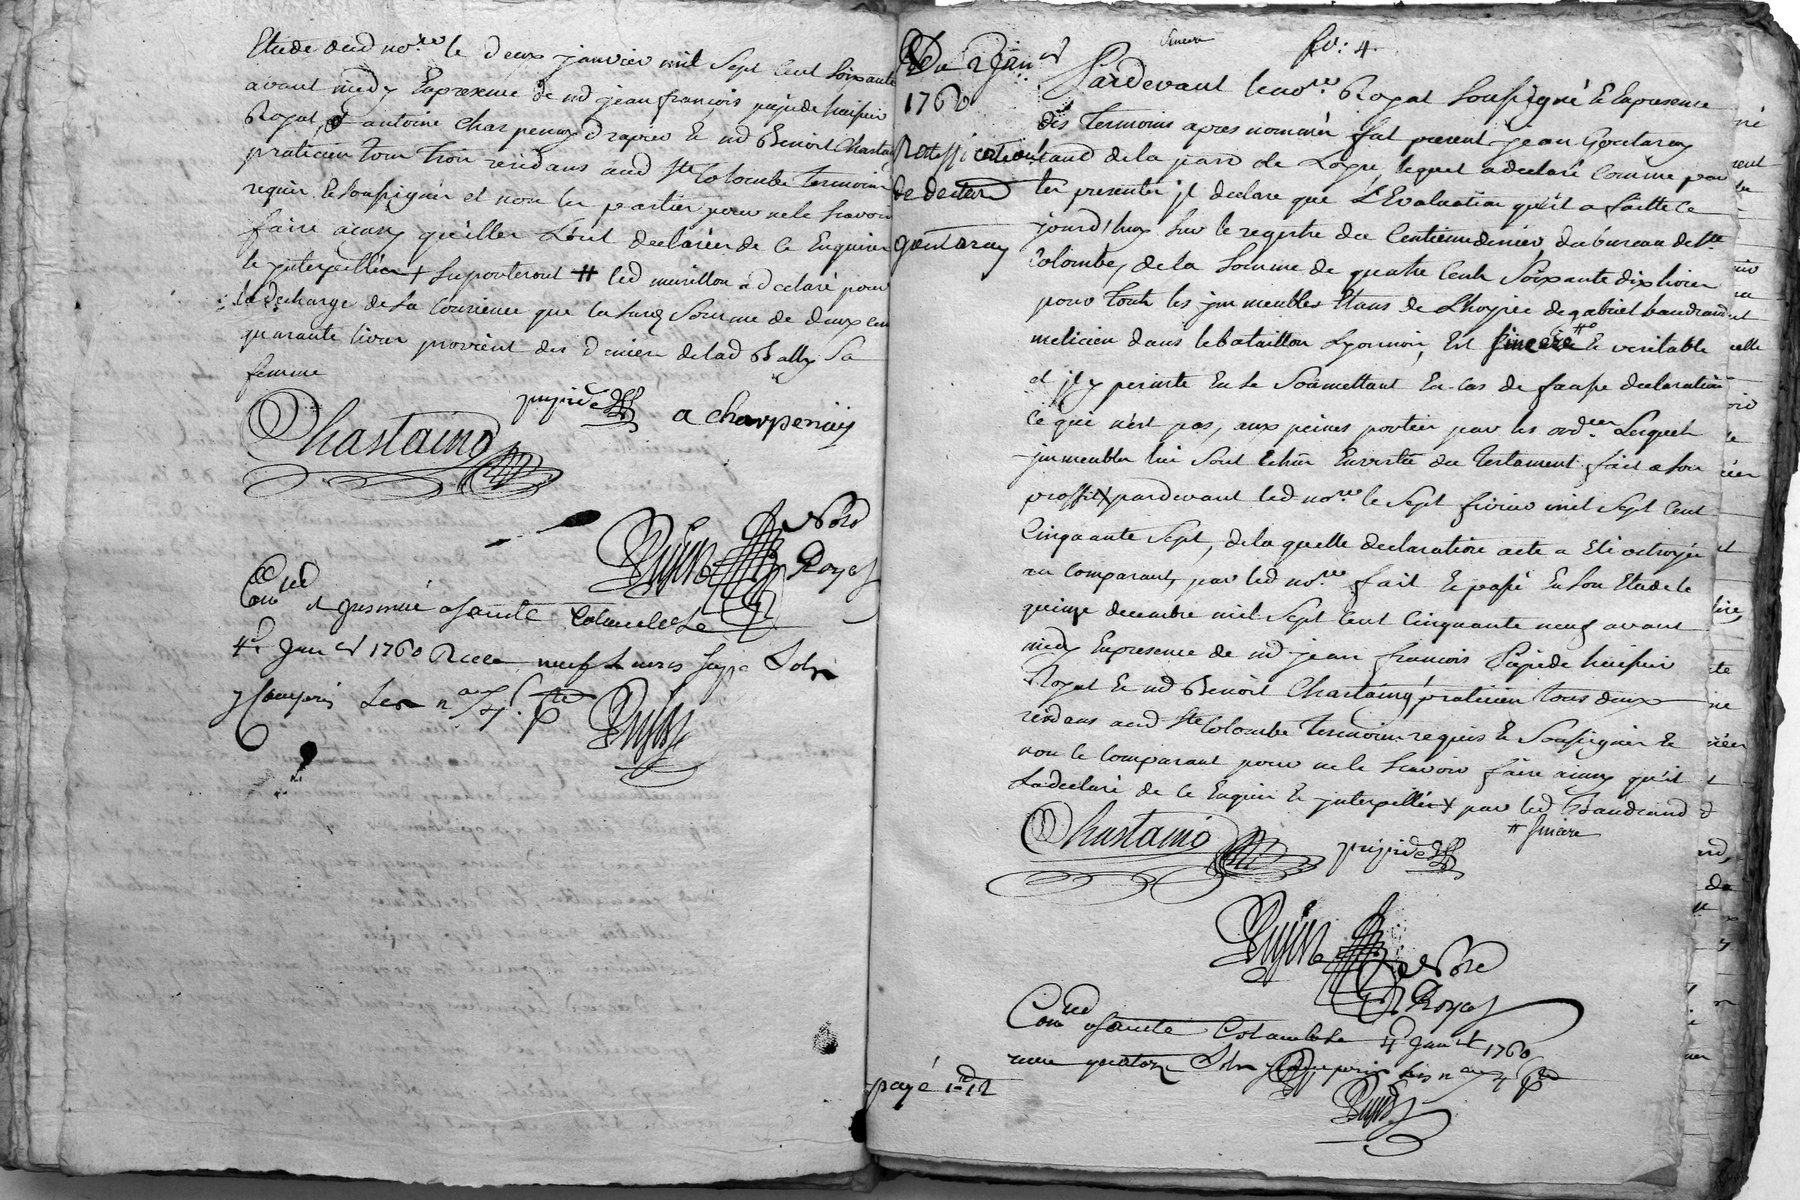 Etude dud no.re le deux janvier mil sept cent soixante
avant midy En presence de md jean françois pupide huissier
Royal, et antoine charpenay drapier et md Benoit Chastaing
praticien tous trois residans aud Ste Colombe temoins
requis et soussignés et non les parties pour ne le scavoir
faire ainsy qu'elles L'ont declaré de ce Enquises
et interpellées led murillon a declaré pour
la decharge de sa Conscience que la susd somme de deux cen
quarante livres provient des deniers de lad Bally sa
femme
pupide a charpenay
Chastaing
No.re
Royal
Con.lé et insinué a sainte Colombe Le
4.e Janv.er 1760 Reçu neuf Livres sols
y compris Les n.aux 4 s. p.r L.
fo: 4.
sincere
Du 2 Janv.er
1760
Rattification
de declar.on
goutaray
Pardevant le no.re Royal soussigné et En presence
des temoins apres nommés fut present jean Goutaray
de la par.sse de Loyre lequel a declaré comme par
les presentes il declare que L'Evaluation qu'il a faitte ce
jourd'huy sur le registre du Centieme denier du bureau de Ste
Colombe, de la somme de quatre cents soixante dix livres
pour touts les immeubles Etans de L'hoyrie de gabriel baudrand
melicien dans le bataillon Lyonnois, Est sincere et veritable
et il y persiste En se soumettant En cas de fausse declaration
ce qui n'est pas, aux peines portées par les ord.ces Lesquels
immeubles lui sont Echus En vertu du testament fait a son
proffit pardevant led no.re le sept fevrier mil sept cent
Cinquante sept, de la quelle declaration acte a Eté octroyé
au comparant, par led no.re fait et passé En son Etude le
quinze decembre mil sept cent Cinquante neuf avant
midy En presence de md jean françois Pupide huissier
Royal et md Benoit Chastaing praticien tous deux
residans aud Ste Colombe temoins requis et soussignés et
non le comparant pour ne le scavoir faire ainsy qu'il
L'a declaré de ce Enquis et interpellé par led Baudrand
sincere
Chastaing pupide
No.re
Royal
Con.lé a sainte Colombe Le 4 Janv.er 1760
reçu quatorze sols y compris Les n.aux 4 s.
payé 1 12